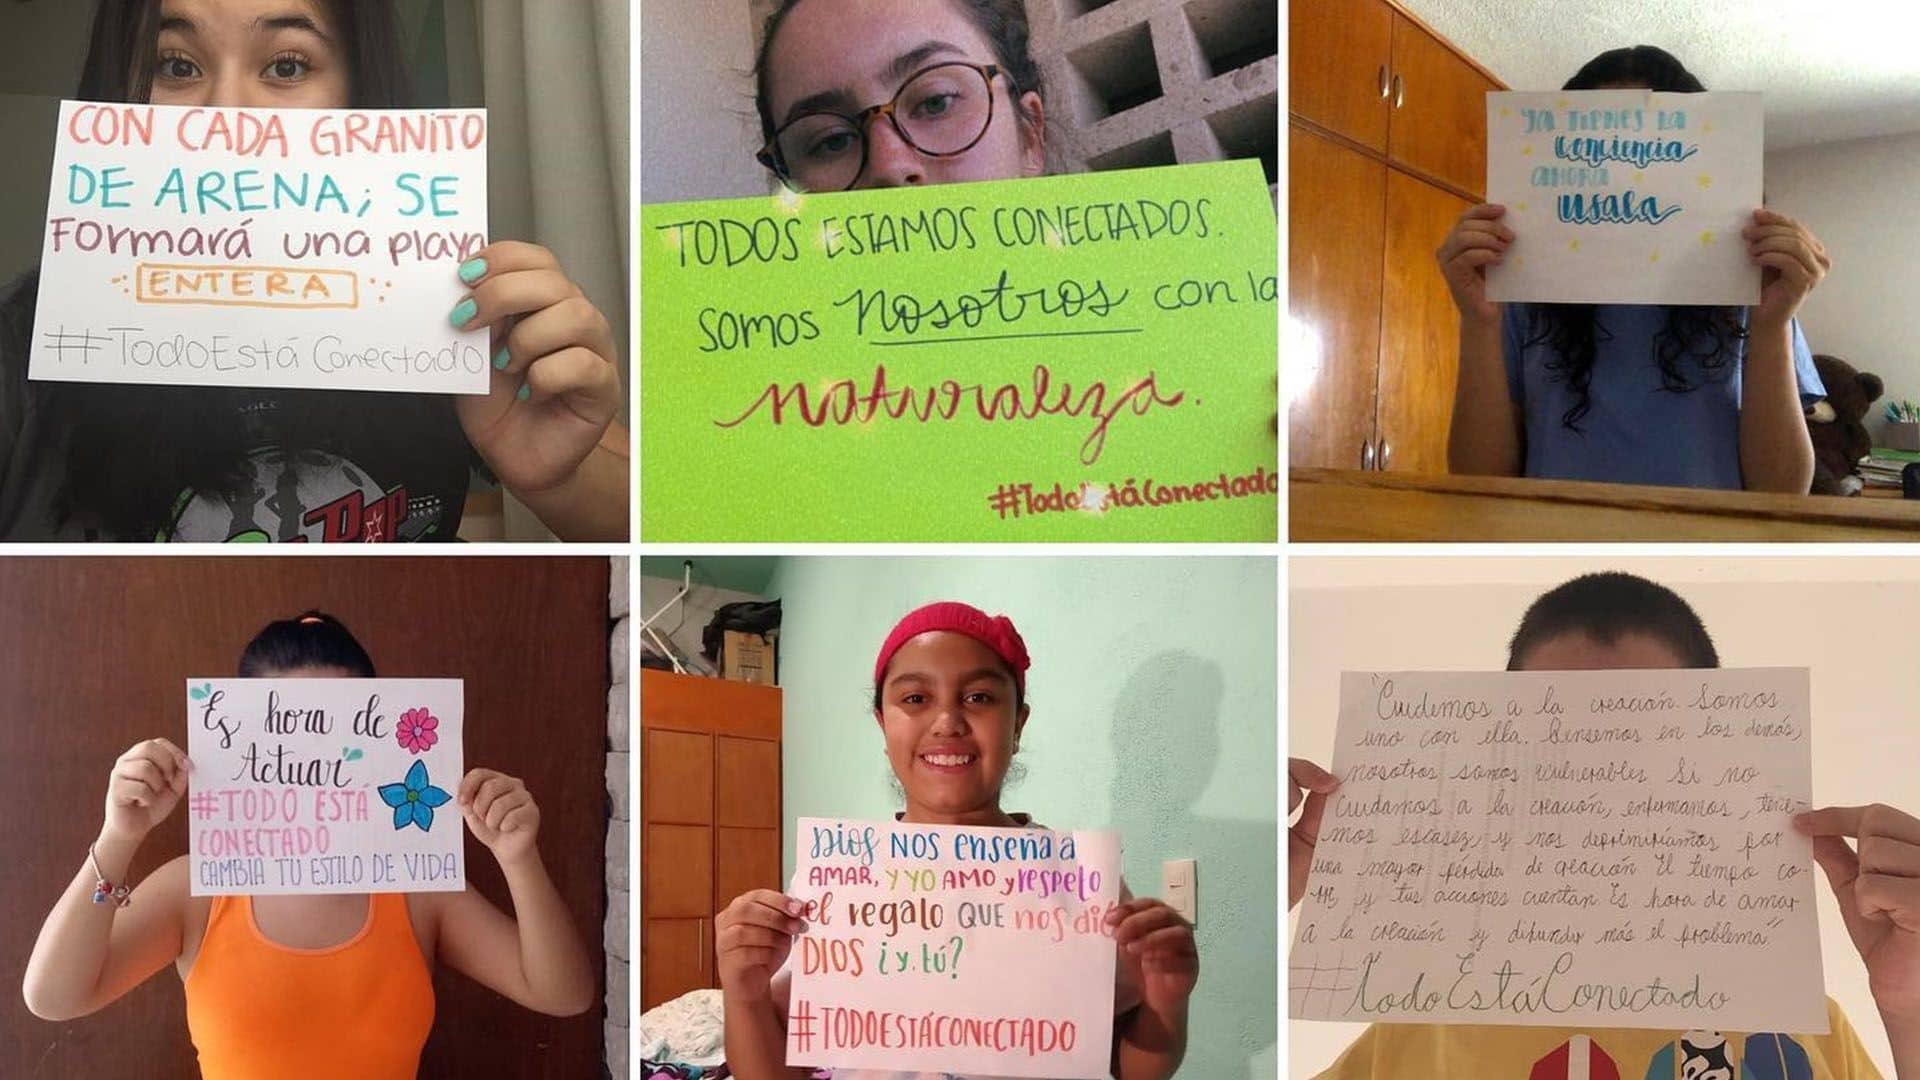 CON CADA GRANITO
DE ARENA; SE
Formará una playa
ENTERA
#TodoEstá Conectado
TODOS ESTAMOS CONECTADOS.
somos nosotros con la
naturaleza.
#TodoEstáConectado
YA TIENES LA
Conciencia
AHORA
usala
Es hora de
Actuar
#TODO ESTÁ
CONECTADO
CAMBIA TU ESTILO DE VIDA
Dios NOS enseña a
AMAR, Y YO AMO y respeto
el regalo QUE nos dió
DIOS ¿y tú?
#TODOESTÁCONECTADO
"Cuidemos a la creación. Somos
uno con ella. Pensemos en los demás,
nosotros somos vulnerables Si no
cuidamos a la creación, enfermamos, tene-
mos escasez y nos deprimiríamos por
una mayor pérdida de creación El tiempo co-
rre y tus acciones cuentan Es hora de amar
a la creación y difundir más el problema"
#TodoEstáConectado